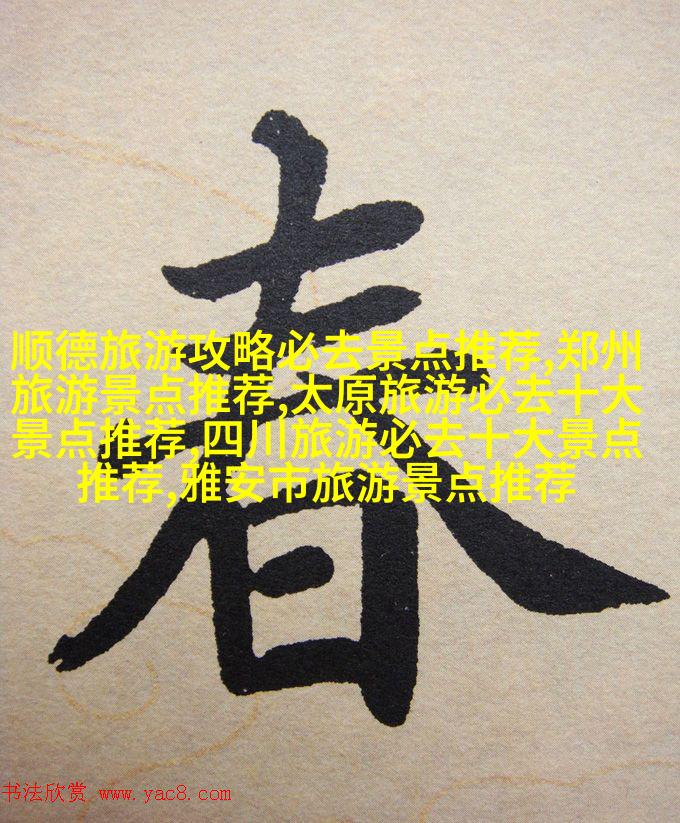 春
顺德旅游攻略必去景点推荐,郑州
旅游景点推荐,太原旅游必去十大
景点推荐,四川旅游必去十大景点
推荐,雅安市旅游景点推荐
书法欣赏 www.yac8.com